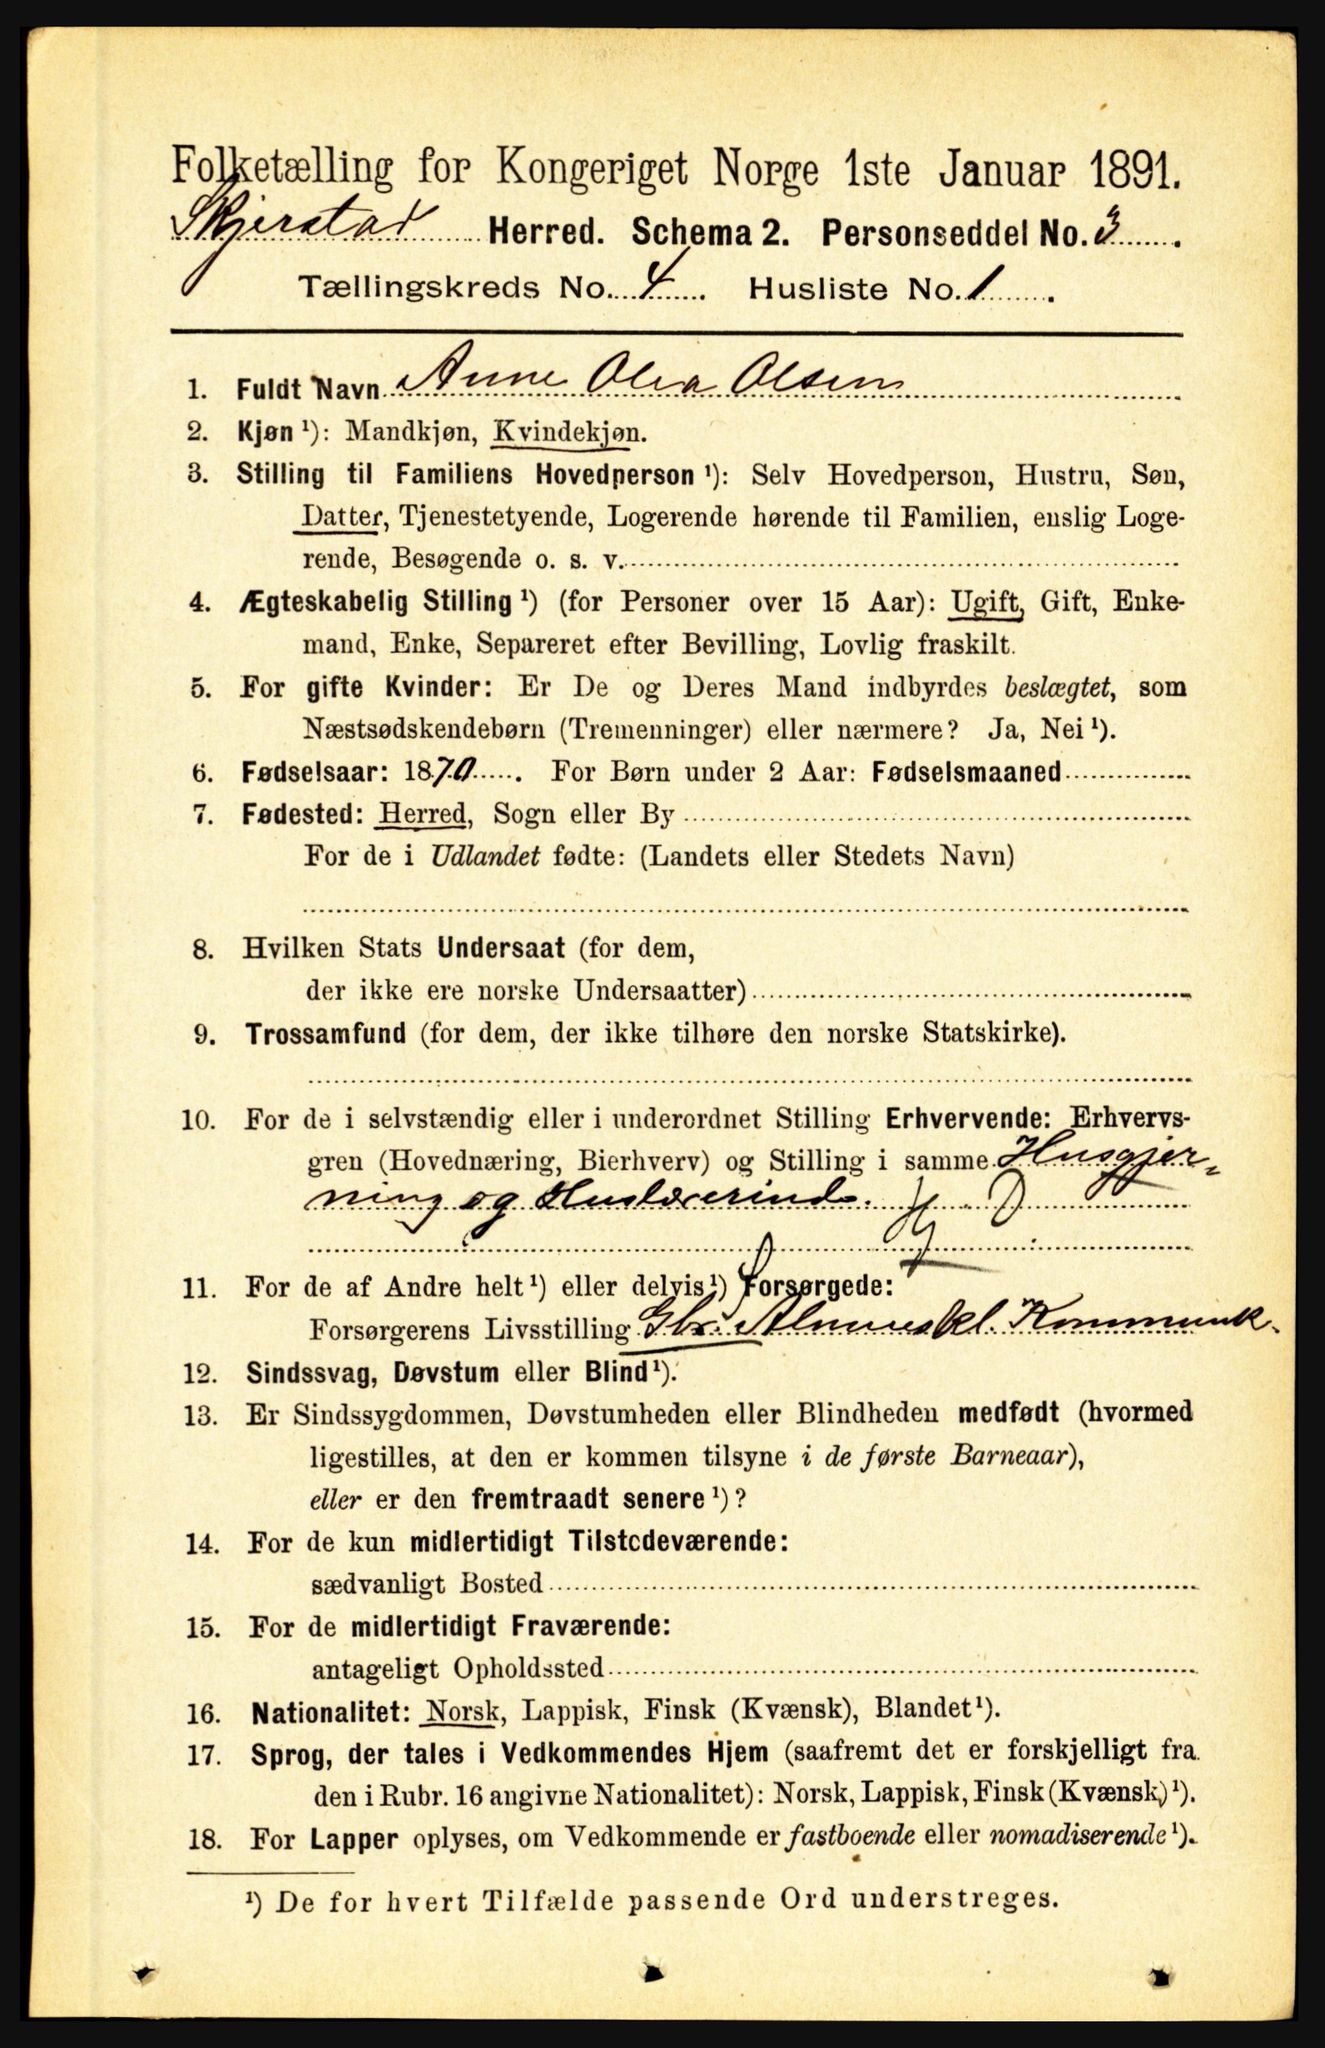 Folketælling for Kongeriget Norge 1ste Januar 1891.
Skjerstad Herred. Schema 2. Personseddel No. 3.
Tællingskreds No. 4. Husliste No. 1.
1. Fuldt Navn Anne Olea Olsen
2. Kjøn ¹): Mandkjøn, Kvindekjøn.
3. Stilling til Familiens Hovedperson ¹): Selv Hovedperson, Hustru, Søn,
Datter, Tjenestetyende, Logerende hørende til Familien, enslig Loge-
rende, Besøgende o. s. v.
4. Ægteskabelig Stilling ¹) (for Personer over 15 Aar): Ugift, Gift, Enke-
mand, Enke, Separeret efter Bevilling, Lovlig fraskilt.
5. For gifte Kvinder: Er De og Deres Mand indbyrdes beslægtet, som
Næstsødskendebørn (Tremenninger) eller nærmere? Ja, Nei ¹).
6. Fødselsaar: 1870. For Børn under 2 Aar: Fødselsmaaned
7. Fødested: Herred, Sogn eller By
For de i Udlandet fødte: (Landets eller Stedets Navn)
8. Hvilken Stats Undersaat (for dem,
der ikke ere norske Undersaatter)
9. Trossamfund (for dem, der ikke tilhøre den norske Statskirke).
10. For de i selvstændig eller i underordnet Stilling Erhvervende: Erhvervs-
gren (Hovednæring, Bierhverv) og Stilling i samme Husgjer-
ning og Huslærerinde.
11. For de af Andre helt ¹) eller delvis ¹) Forsørgede:
Forsørgerens Livsstilling Gbr.
12. Sindssvag, Døvstum eller Blind ¹).
13. Er Sindssygdommen, Døvstumheden eller Blindheden medfødt (hvormed
ligestilles, at den er kommen tilsyne i de første Barneaar),
eller er den fremtraadt senere ¹)?
14. For de kun midlertidigt Tilstedeværende:
sædvanligt Bosted
15. For de midlertidigt Fraværende:
antageligt Opholdssted
16. Nationalitet: Norsk, Lappisk, Finsk (Kvænsk), Blandet ¹).
17. Sprog, der tales i Vedkommendes Hjem (saafremt det er forskjelligt fra
den i Rubr. 16 angivne Nationalitet): Norsk, Lappisk, Finsk (Kvænsk) ¹).
18. For Lapper oplyses, om Vedkommende er fastboende eller nomadiserende ¹).
¹) De for hvert Tilfælde passende Ord understreges.